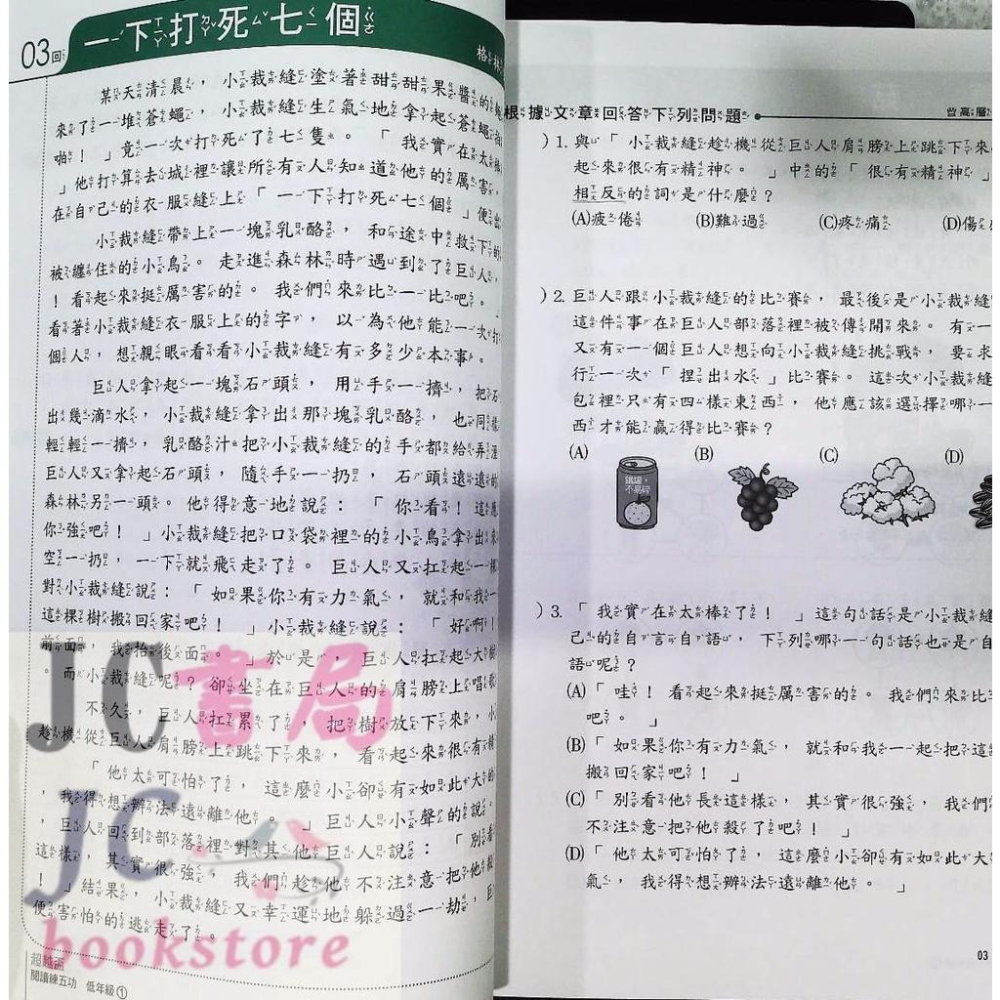 03回
一下打死七個
格林
某天清晨，小裁縫塗著甜甜果醬的
來了一堆蒼蠅，小裁縫生氣地拿起蒼蠅
啪！」竟一次打死了七隻。「我實在太棒
」他打算去城裡讓所有人知道他的厲害，
在自己的衣服縫上「一下打死七個」便出
小裁縫帶上一塊乳酪，和途中救下的
被纏住的小鳥。走進森林時遇到了巨人，
！看起來挺厲害的。我們來比一比吧。
看著小裁縫衣服上的字，以為他能一次打
個人，想親眼看看小裁縫有多少本事。
巨人拿起一塊石頭，用手一擠，把石
出幾滴水，小裁縫拿出那塊乳酪，也同樣
輕輕一擠，乳酪汁把小裁縫的手都給弄溼
巨人又拿起石頭，隨手一扔，石頭遠遠的
森林另一頭。他得意地說：「你看！這應
你強吧！」小裁縫把口袋裡的小鳥拿出來
空一扔，一下就飛走了。巨人又扛起一棵
對小裁縫說：「如果你有力氣，就和我一
這棵樹搬回家吧！」小裁縫說：「好啊！
前面，我抬後面。」於是，巨人扛起大樹
。而小裁縫呢？卻坐在巨人的肩膀上唱歌
不久，巨人扛累了，把樹放下來，小
趁機從巨人肩膀上跳下來，看起來很有精
「他太可怕了，這麼小卻有如此大的
，我得想辦法遠離他。」巨人小聲的說。
，巨人回到部落裡對其他巨人說：「別看
這樣，其實很強，我們趁他不注意把他殺
！」結果，小裁縫又幸運地躲過一劫，巨
便害怕的逃走了。
JC書局
JC
bookstore
超越盃
閱讀練五功 低年級①
根據文章回答下列問題
高層
）1. 與「小裁縫趁機從巨人肩膀上跳下來
起來很有精神。」中的「很有精神」
相反的詞是什麼？
(A)疲倦 (B)難過 (C)疼痛 (D)傷
）2. 巨人跟小裁縫的比賽，最後是小裁縫
這件事在巨人部落裡被傳開來。有一
又有一個巨人想向小裁縫挑戰，要求
行一次「捏出水」比賽。這次小裁縫
包裡只有四樣東西，他應該選擇哪一
西才能贏得比賽？
(A) (B) (C) (D)
鐵罐，
不易碎
）3. 「我實在太棒了！」這句話是小裁縫
己的自言自語，下列哪一句話也是自
語呢？
(A)「哇！看起來挺厲害的。我們來比
吧。」
(B)「如果你有力氣，就和我一起把這
搬回家吧！」
(C)「別看他長這樣，其實很強，我們
不注意把他殺了吧！」
(D)「他太可怕了，這麼小卻有如此大
氣，我得想辦法遠離他。」
03